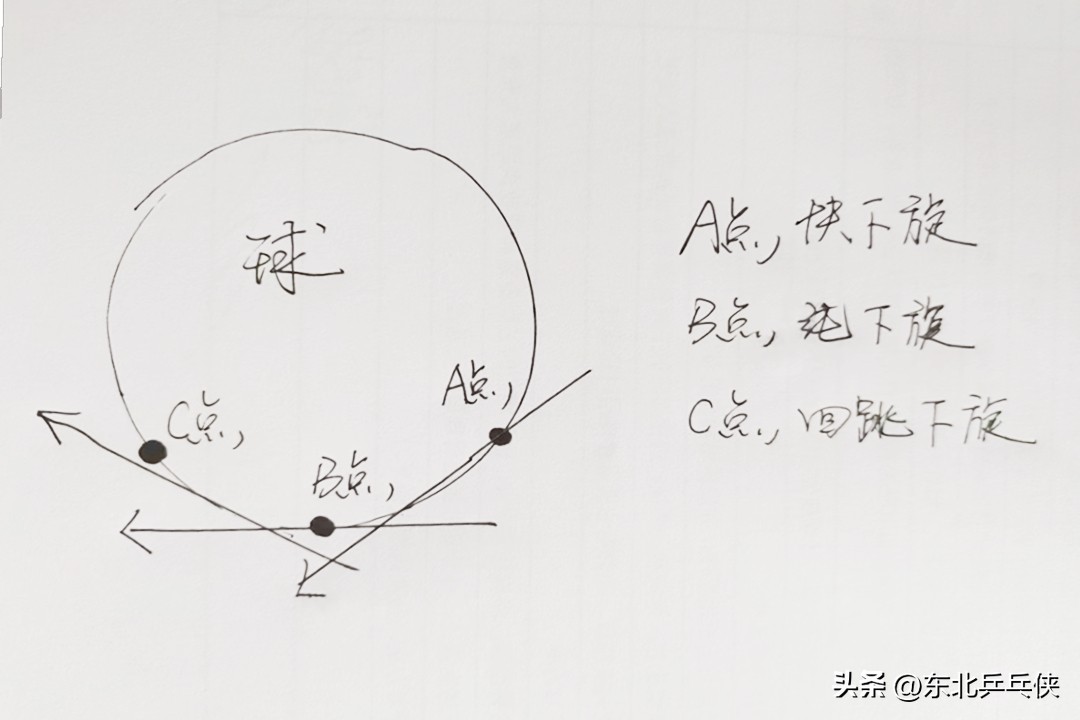 球
A点,
C点,
B点,
A点, 快下旋
B点, 纯下旋
C点, 回跳下旋
头条 @东北乒乓侠